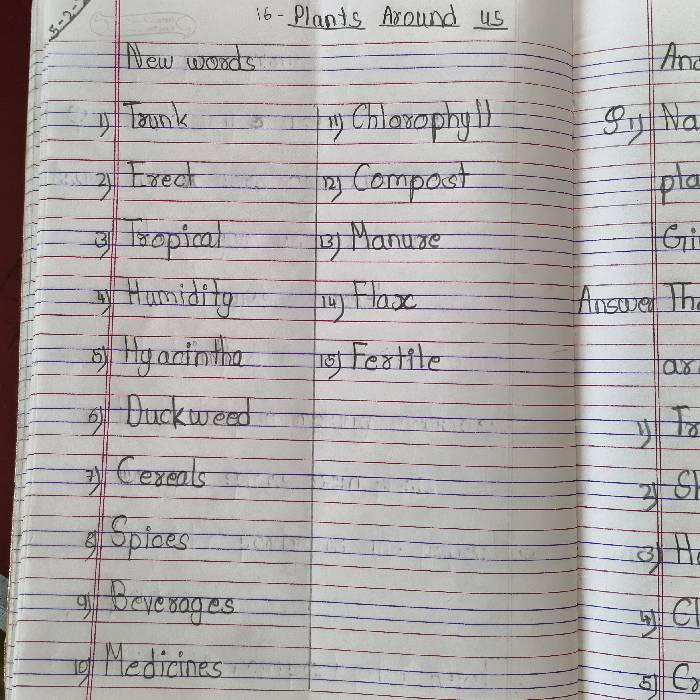 16- Plants Around us
New words
1) Trunk
2) Erect
3) Tropical
4) Humidity
5) Hyacintha
6) Duckweed
7) Cereals
8) Spices
9) Beverages
10) Medicines
11) Chlorophyll
12) Compost
13) Manure
14) Flax
15) Fertile
Q1) Na
pla
Answer Tha
ar
1) Tr
2) Sh
3) He
4) Cl
5) Cr